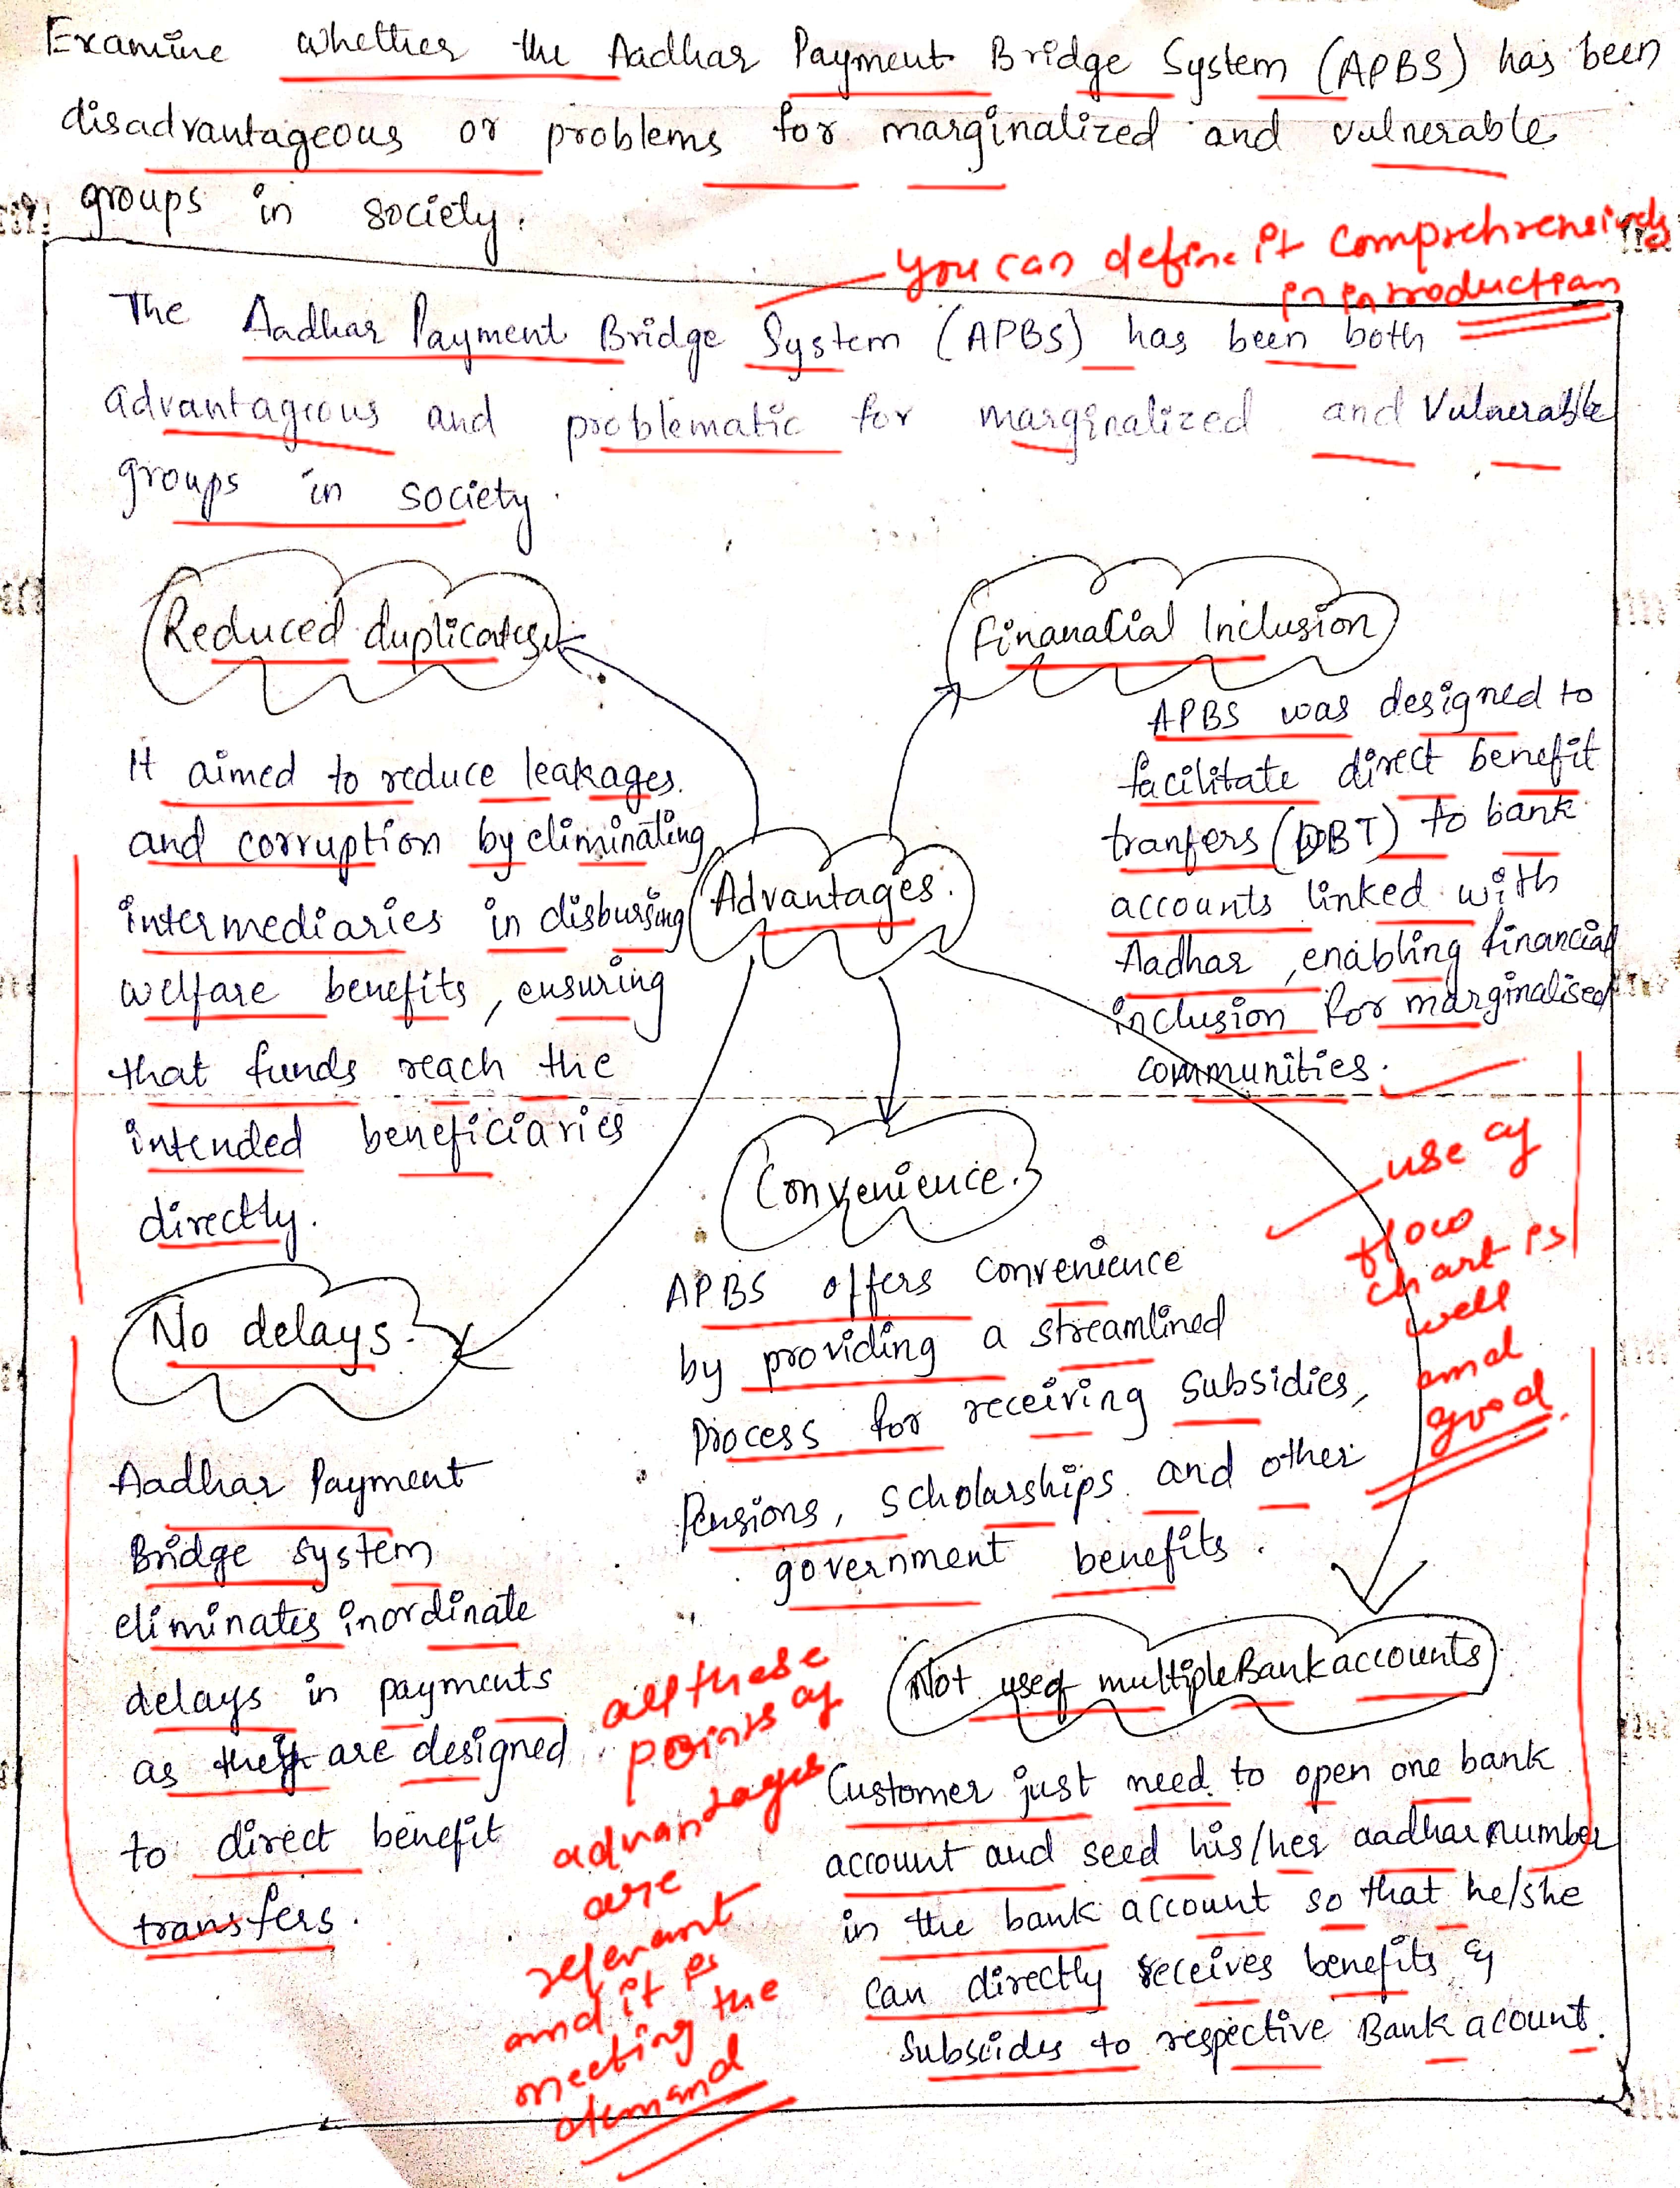 Examine whether the Aadhar Payment Bridge System (APBS) has been
disadvantageous or problems for marginalized and vulnerable
groups in society.
you can define it comprehrensively
in introduction
The Aadhar Payment Bridge System (APBS) has been both
advantageous and problematic for marginalized and Vulnerable
groups in society.
Reduced duplicates
It aimed to reduce leakages
and corruption by eliminating
intermediaries in disbursing
welfare benefits, ensuring
that funds reach the
intended beneficiaries
directly.
Finanacial Inclusion
APBS was designed to
facilitate direct benefit
tranfers (DBT) to bank
accounts linked with
Aadhar, enabling financial
inclusion for marginalised
communities.
Advantages.
use of
flow
chart is
well
and
good.
Convenience.
APBS offers convenience
by providing a streamlined
process for receiving subsidies,
Pensions, scholarships and other
government benefits.
No delays.
Aadhar Payment
Bridge system
eliminates inordinate
delays in payments
as they are designed
to direct benefit
transfers.
all these
points of
advantages
are
relevant
and it is
meeting the
demand
Not use of multiple Bank accounts
Customer just need to open one bank
account and seed his/her aadhar number
in the bank account so that he/she
can directly receives benefits of
subsides to respective Bank acount.